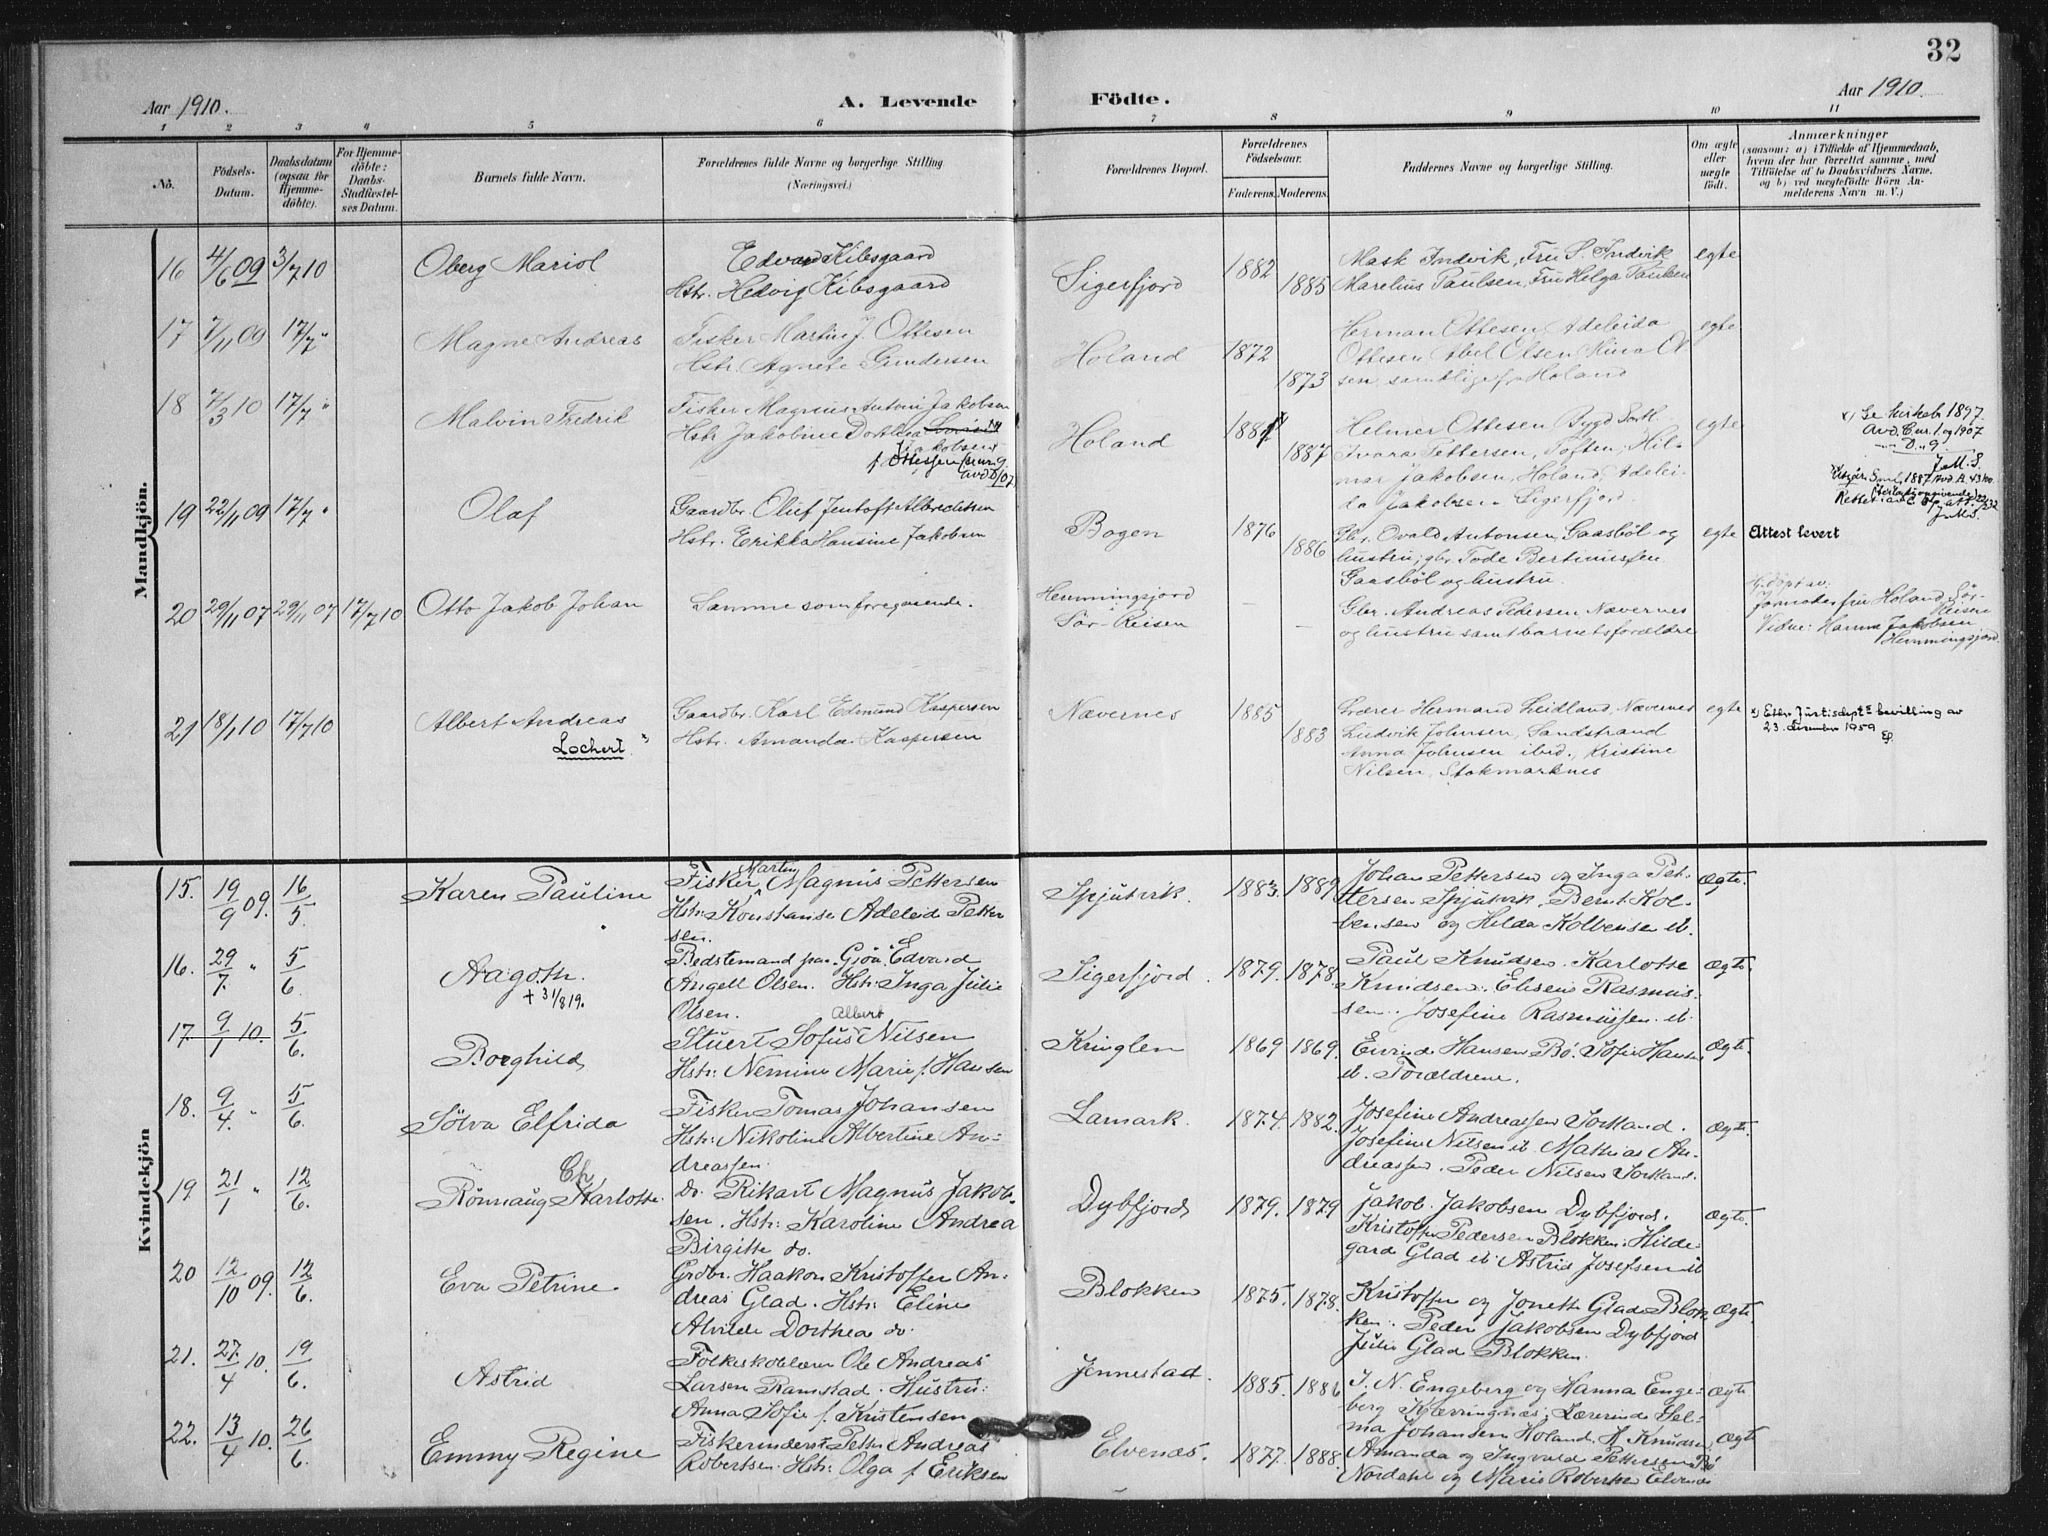 32
Aar 1910.
A. Levende Födte.
Aar 1910.
1 2 3 4 5 6 7 8 9 10 11
No.
Födsels-Datum.
Daabsdatum (ogsaa for Hjemme-döbte).
For Hjemme-döbte: Daabs-Stadfæstel-ses Datum.
Barnets fulde Navn.
Forældrenes fulde Navne og borgerlige Stilling.
(Næringsvei.)
Forældrenes Bopæl.
Forældrenes Födselsaar.
Faderens. Moderens.
Faddernes Navne og borgerlige Stilling.
Om ægte eller uægte födt.
Anmærkninger
(saasom: a) i Tilfælde af Hjemmedaab,
hvem der har forrettet samme, med
Tilföielse af to Daabsvidners Navne,
og b) ved uægtefödte Börn An-
melderens Navn m. V.)
Mandkjön.
16 4/6 09 3/7 10 Oberg Mariol
Edvard Kibsgaard
Hstr. Hedvig Kibsgaard
Sigerfjord 1882 1885
Mask Indvik, Fru S. Indvik
Marelius Paulsen, Fru Helga Paulsen
egte
17 7/11 09 17/7 " Magne Andreas
Fisker Martin J. Ottesen
Hstr. Agnete Gundersen
Holand 1872 1873
Herman Ottesen, Adeleida
Ottesen, Abel Olsen, Nina Ol
sen, samtlige fr Holand
egte
18 7/3 10 17/7 " Malvin Fredrik
Fisker Magnus Antoni Jakobsen
Hstr Jakobine Dorthea
Jakobsen
f. Ottessen
Holand 1887
Helmer Ottesen Bygd Sortl.
Ivara Pettersen, Toften, Hil-
mar Jakobsen, Holand, Adelei-
da Jakobsen Sigerfjord.
egte
x) Se kirkeb 1897.
J.M.S.
19 22/11 09 17/7 " Olaf
Gaardbr. Oluf Jentoft Albrechtsen
Hstr. Erikka Hansine Jakobsen
Bogen 1876 1886
Gbr. Ovald Antonsen, Gaasböl og
hustru, gbr Tode Bertinussen
Gaasböl og hustru.
egte
Attest levert
20 29/11 07 29/11 07 17/7 10 Otto Jakob Johan
Samme som foregaaende.
Hemmingsjord
Sör-Reisen
Gbr. Andreas Pedersen Nævernes
og hustru samt barnets forældre
Hj.döpt av:
Jormoder fru Holand, Sör-
Reisen
Vidne: Hanna Jakobsen
Hemmingsjord
21 18/1 10 17/7 10 Albert Andreas
Lochert x)
Gaardbr. Karl Edmund Kaspersen
Hstr. Amanda Kaspersen
Nævernes 1885 1883
Lærer Hermand Leidland, Nævernes
Ludvik Johnsen, Sandstrand
Anna Johnsen ibid., Kristine
Nilsen, Stokmarknes
egte
x) Etter Justisdepts bevilling av
23. desember 1959
Kvindekjön
15. 19/9 09. 16/5 Karen Pauline
Fisker Martin Magnus Pettersen
Hstr: Konstanse Adeleid Petter
sen.
Spjutvik 1883. 1889
Johan Pettersen og Inga Pet-
tersen Spjutvik, Bernt Kol-
bensen og Hilda Kolbensen ib.
Ægte.
16. 29/7. " 5/6 Aagoth.
+ 31/8 19.
Bedstemand paa Gjöa. Edvard
Angell Olsen. Hstr: Inga Julie
Olsen.
Sigerfjord. 1879. 1878.
Paul Knudsen. Karlotte
Knudsen. Elisene Rasmus-
sen. Josefine Rasmussen. ib.
Ægte
17. 9/1 10. 5/6. Borghild
Stuert Sofus Albert Nilsen
Hstr: Nemine Marie f. Hansen
Kringlen 1869 1869.
Eivind Hansen Bö. Sofie Hansen
ib. Forældrene.
Ægte.
18. 9/4. " 5/6 Sölva Elfrida
Fisker Tomas Johansen
Hstr: Nikoline Albertine An-
dreassen.
Lamark. 1874. 1882.
Josefine Andreassen Sortland.
Josefine Nilsen ib. Mathias An-
dreassen. Peder Nilsen Sortland.
Ægte.
19. 21/1 " 12/6. Rönnaug Ch Karlotte.
do. Rikart Magnus Jakob-
sen. Hstr: Karoline Andrea
Birgitte do.
Dybfjord 1879. 1879
Jakob. Jakobsen Dybfjord.
Kristoffer Pedersen Blokken. Hilde-
gard Glad ib. Astrid Josefsen ib
Ægte.
20 12/10 09. 12/6. Eva Petrine.
Grdbr. Haakon Kristoffer An-
dreas Glad. Hstr: Eline
Alvilde Dorthea do.
Blokken 1875. 1878.
Kristoffer og Jonette Glad Blok
ken. Peder Jakobsen Dybfjord
Julie Glad Blokken.
Ægte
21. 27/4 10. 19/6. Astrid
Folkeskolelærer Ole Andreas
Larsen Ramstad. Hustru:
Anna Sofie f. Kristensen
Jennestad. 1885. 1886
J. N. Engeberg og Hanna Enge-
berg Kjerringnes, Lærerinde Sel-
ma Johansen Holand. Knudsen,
Ægte
22. 13/4 10. 26/6. Emmy Regine
Fiskerinderst Petter Andreas
Robertsen. Hstr: Olga f. Eriksen
Elvenes. 1877. 1888.
Amanda og Ingvald Pettersen Bö
Nordahl og Marie Robertsen Elvenes
Ægte